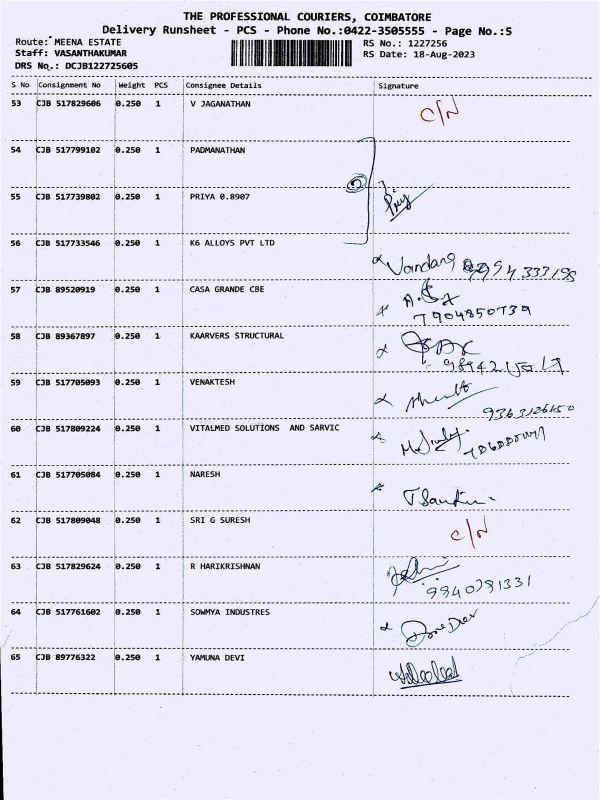 THE PROFESSIONAL COURIERS, COIMBATORE
Delivery Runsheet - PCS - Phone No.:0422-3505555 - Page No.:5
Route: MEENA ESTATE
RS No.: 1227256
Staff: VASANTHAKUMAR
RS Date: 18-Aug-2023
DRS No.: DCJB122725605
S No Consignment No Weight PCS Consignee Details Signature
53 CJB 517829606 0.250 1 V JAGANATHAN C/N
54 CJB 517799102 0.250 1 PADMANATHAN
55 CJB 517739802 0.250 1 PRIYA 0.8907 Priy
56 CJB 517733546 0.250 1 K6 ALLOYS PVT LTD Vandana
57 CJB 89520919 0.250 1 CASA GRANDE CBE
7904850739
58 CJB 89367897 0.250 1 KAARVERS STRUCTURAL
59 CJB 517705093 0.250 1 VENAKTESH
60 CJB 517809224 0.250 1 VITALMED SOLUTIONS AND SARVIC
61 CJB 517705084 0.250 1 NARESH
62 CJB 517809048 0.250 1 SRI G SURESH C/N
63 CJB 517829624 0.250 1 R HARIKRISHNAN
9940791331
64 CJB 517761602 0.250 1 SOWMYA INDUSTRES
65 CJB 89776322 0.250 1 YAMUNA DEVI